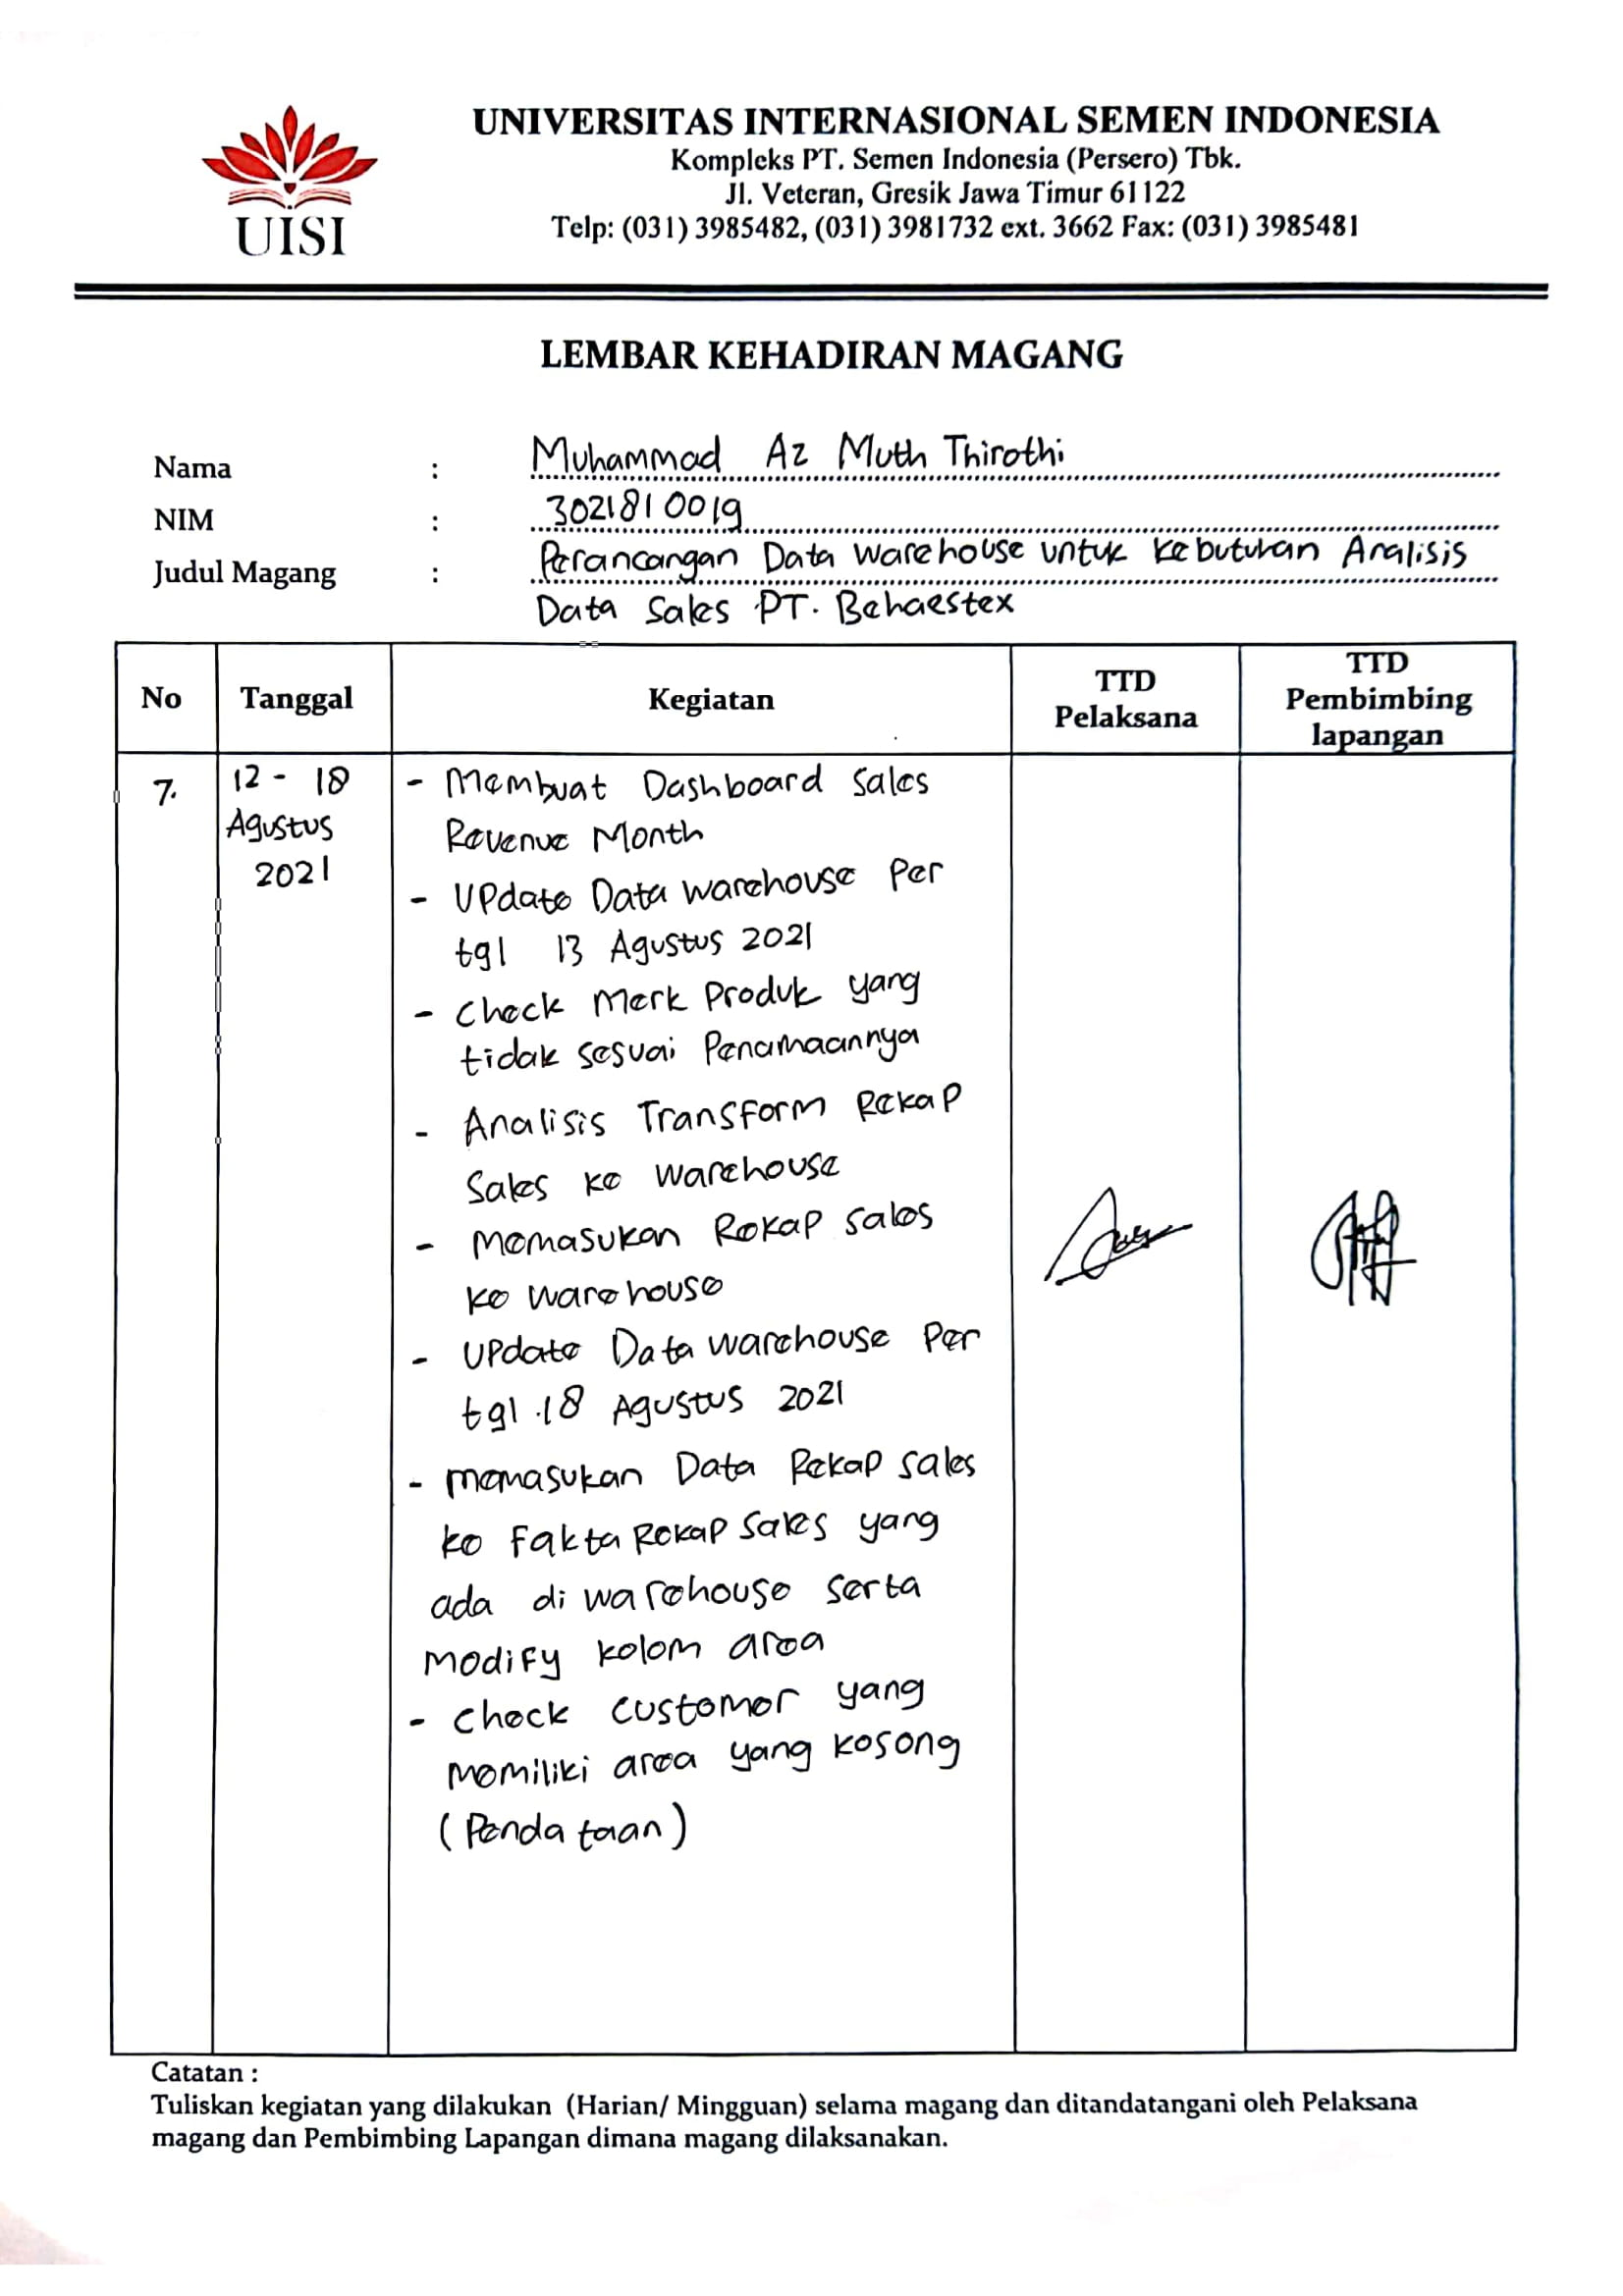 UISI
UNIVERSITAS INTERNASIONAL SEMEN INDONESIA
Kompleks PT. Semen Indonesia (Persero) Tbk.
Jl. Veteran, Gresik Jawa Timur 61122
Telp: (031) 3985482, (031) 3981732 ext. 3662 Fax: (031) 3985481
LEMBAR KEHADIRAN MAGANG
Nama : Muhammad Az Muth Thirothi
NIM : 3021810019
Judul Magang : Perancangan Data Warehouse untuk Kebutuhan Analisis
Data Sales PT. Behaestex
No Tanggal Kegiatan TTD Pelaksana TTD Pembimbing lapangan
7.
12 - 18
Agustus
2021
- Membuat Dashboard Sales
Revenue Month
- Update Data Warehouse Per
tgl 13 Agustus 2021
- Check Merk Produk yang
tidak sesuai Penamaannya
- Analisis Transform Rekap
Sales ke Warehouse
- Memasukan Rekap Sales
ke Warehouse
- Update Data Warehouse Per
tgl 18 Agustus 2021
- Memasukan Data Rekap Sales
ke Fakta Rekap Sales yang
ada di Warehouse serta
Modify kolom area
- Check Customer yang
Memiliki area yang kosong
(Pendataan)
Catatan :
Tuliskan kegiatan yang dilakukan (Harian/ Mingguan) selama magang dan ditandatangani oleh Pelaksana
magang dan Pembimbing Lapangan dimana magang dilaksanakan.